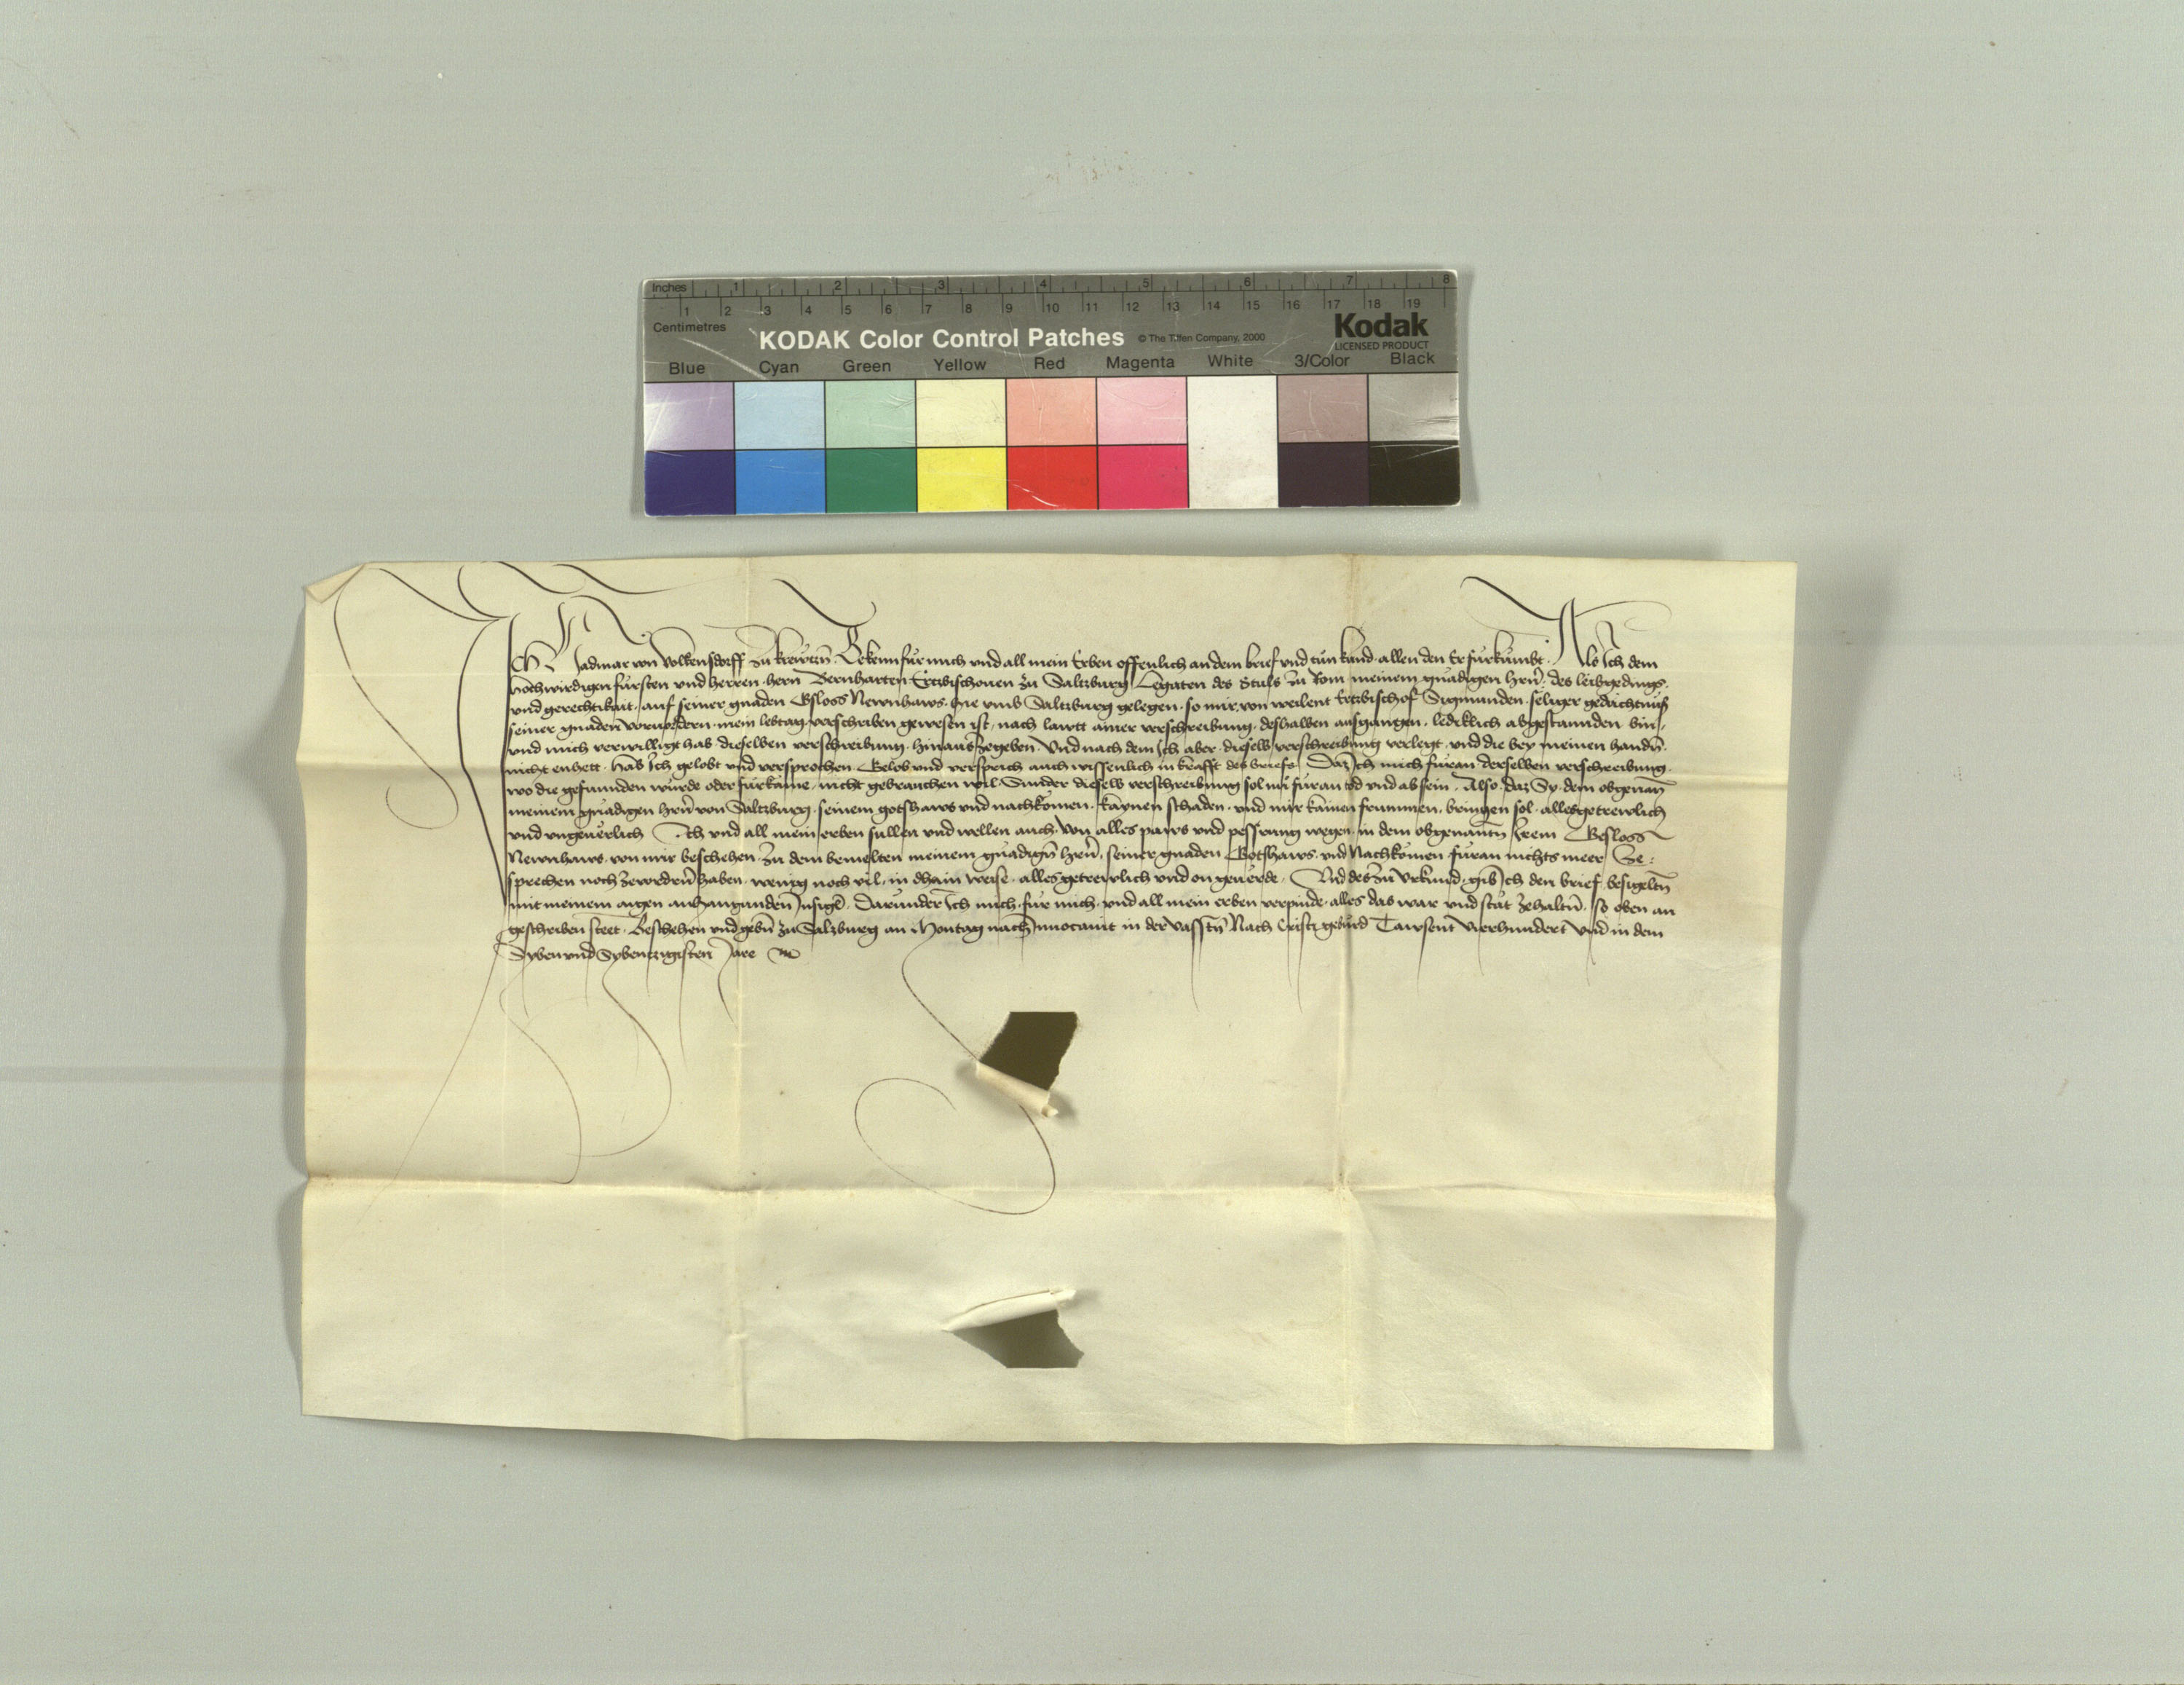 Inches 1 2 3 4 5 6 7 8
1 2 3 4 5 6 7 8 9 10 11 12 13 14 15 16 17 18 19
Centimetres
KODAK Color Control Patches © The Tiffen Company, 2000 Kodak
LICENSED PRODUCT
Blue Cyan Green Yellow Red Magenta White 3/Color Black
Ich Hadmar von Volkenstorff zu Bekenn fur mich und all mein Erben offenlich an dem brief und tun kund allen den Er furkumbt. Als Ich dem
hochwirdigen fursten und herren hern Bernharten Ertzbischouen zu Saltzburg Legaten des Stuls zu Rom meinem gnadigen hern des leibgedings
und gerechtikait auf seiner gnaden Gsloss Newnhaws hie vmb Saltzburg gelegen so mir von weilent Ertzbischof Sigmunden seliger gedachtnuss
seiner gnaden voruordern mein lebtag verschriben gewesen ist nach lawtt ainer verschreibung deshalben ausgangen lediklich abgestannden bin
und mich verwilligt hab dieselben verschreibung hinaus zegeben Und nach dem Ich aber dieselb verschreibung verlegt und die bey meinen handn
nicht enhett hab Ich gelobt und versprochen Gelob und versprich auch wissenlich in krafft des briefs Daz Ich mich furan derselben verschreibung
wo die gefunnden wurde oder furkäme nicht gebrauchen wil Sunder dieselb verschreibung sol nu furan tod und ab sein Also daz Sy dem obgenan
meinem gnadigen hern von Saltzburg seinem gotshaws und nachkomen kaynen schaden und mir kainen frummen bringen sol alles getrewlich
und ungeuerlich Ich und all mein erben sullen und wellen auch von alles paws und pessrung wegen in dem obgenantn Irem Gesloss
Newnhaws von mir beschehen zu dem bemelten meinem gnadign hern seiner gnaden Gotshaws und Nachkomen furan nichts meer Ze
sprechen noch zevordern haben wenig noch vil in dhain weise alles getrewlich und on geuerde Und des zu Urkund gib Ich den brief besigeltn
mit meinem aigen anhangunden Insigel Darunder Ich mich fur mich und all mein erben verpinde alles das war und stät zehaltn so oben an
geschriben steet Beschehen und gebn zu Saltzburg an Montag nach Inuocauit in der vasstn Nach Cristi geburd Tawsent Vierhundert und in dem
Syben und Sybentzigisten Jare